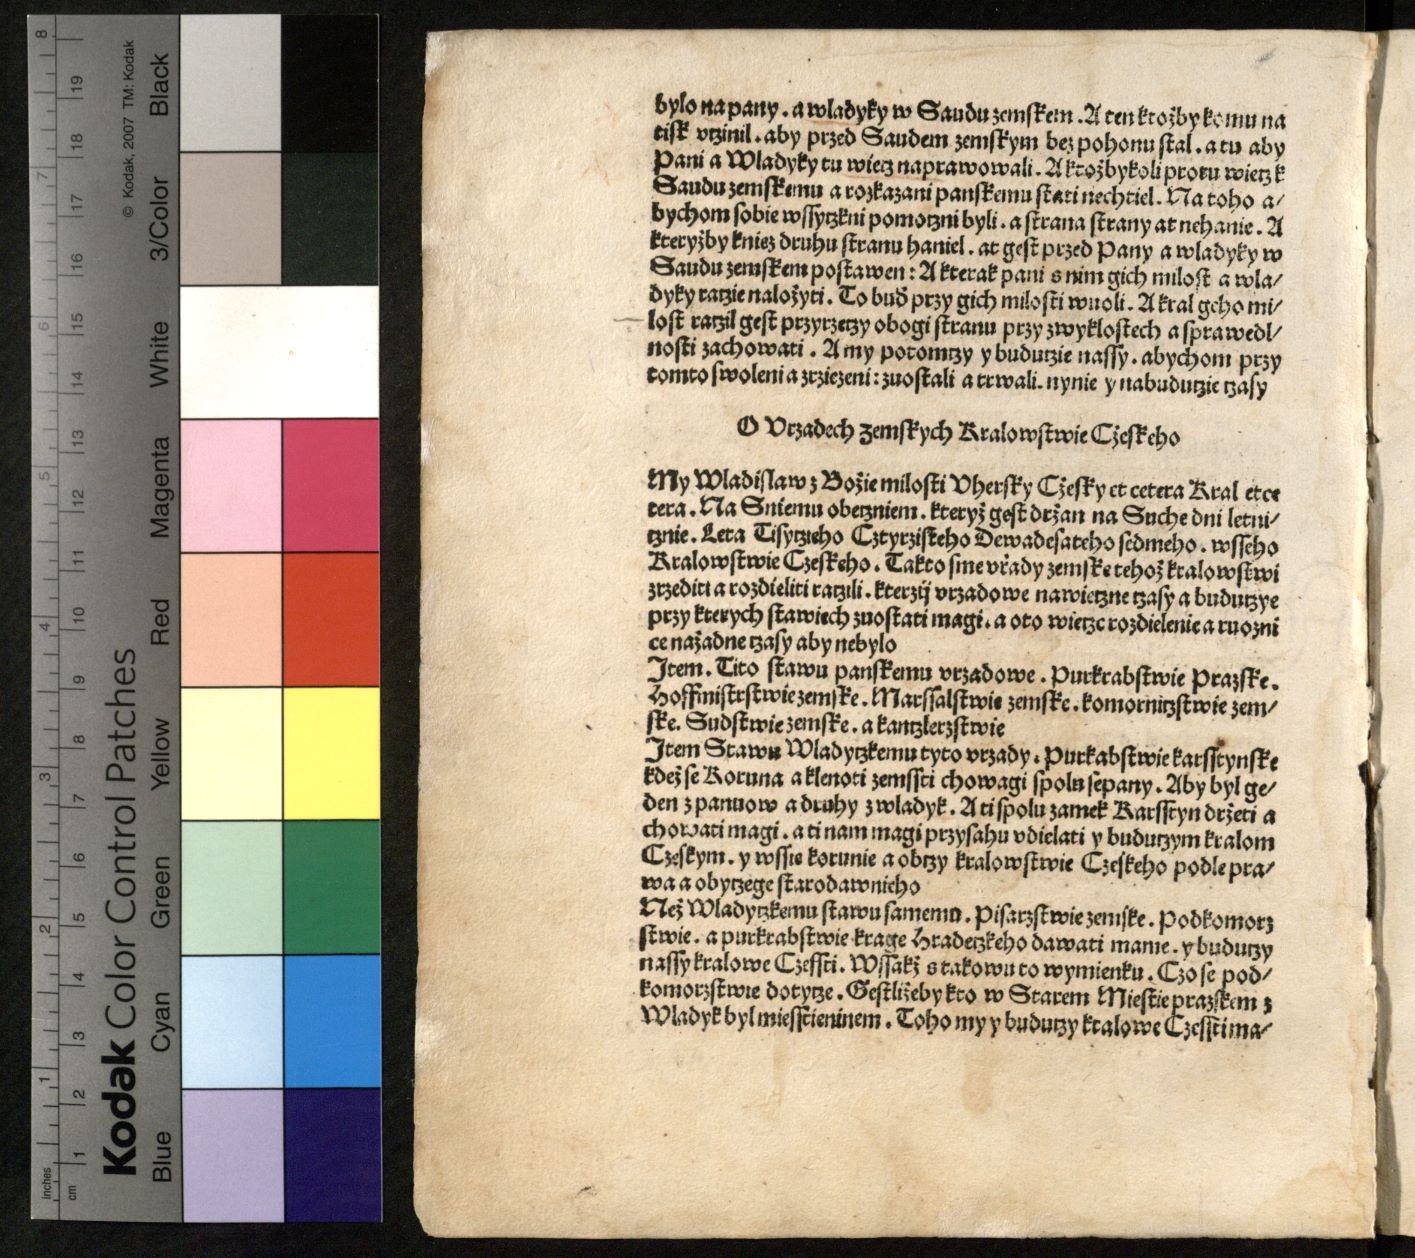 bylo na pany . a wladyky w Saudu zemskem . A ten ktožby komu na
tisk vrzinil . aby przed Saudem zemskym bez pohonu stal . a tu aby
Pani a Wladyky tu wiecz naprawowali . A ktožbykoli protu wieczk
Saudu zemskemu a rozkazani panskemu stati nechtiel . Na toho a/
bychom sobie wssytzkni pomotzni byli . a strana strany at nehanie . A
kteryžby kniez druhu stranu haniel . at gest przed Pany a wladyky w
Saudu zemskem postawen : A kterak pani s nim gich milost a wla/
dyky ratzie naložyti . To buď przy gich milosti wuoli . A kral geho mi/
lost ratzil gest przyrzetzy obogi stranu przy zwyklostech a sprawedl/
nosti zachowati . A my potomtzy y budutzie nassy . abychom przy
tomto swoleni a zrziezeni : zuostali a trwali . nynie y nabudutzie tzasy
O Vrzadech zemskych Kralowstwie Cžeskeho
My Wladislaw z Božie milosti Vhersky Cžesky et cetera Kral et ce
tera . Na Sniemu obetzniem . kteryž gest držan na Suche dni letni/
tznie . Leta Tisytzieho Cztyrzisteho Dewadesateho sedmeho . wsseho
Kralowstwie Czeskeho . Takto sme vřady zemske tehož kralowstwi
zrzediti a rozdieliti ratzili . kterzij vrzadowe nawietzne tzasy a budutzye
przy kterych stawiech zuostati magi . a oto wietze rozdielenie a ruozni
ce nažadne tzasy aby nebylo
Item . Tito stawu panskemu vrzadowe . Purkrabstwie Prazske .
Hoffmistrstwie zemske . Marssalstwie zemske . komornitzstwie zem/
ske . Sudstwie zemske . a kantzlerzstwie
Item Stawu Wladytzkemu tyto vrzady . Purkabstwie karsstynske
kdež se Koruna a klenoti zemssti chowagi spolu se pany . Aby byl ge/
den z panuow a druhy z wladyk . A ti spolu zamek Karsstyn držeti a
chowati magi . a ti nam magi przysahu vdielati y budutzym kralom
Czeskym . y wssie korunie a obtzy kralowstwie Czeskeho podle pra/
wa a obytzege starodawnieho
Než Wladytzkemu stawu samemu . Pisarzstwie zemske . Podkomorz
stwie . a purkrabstwie krage Hradetzkeho dawati mame . y budutzy
nassy kralowe Czessti . Wssakž s takowu to wymienku . Czo se pod/
komorzstwie dotytze . Gestližeby kto w Starem Miestie prazskem z
Wladyk byl miesstieninem . Toho my y budutzy kralowe Czessti ma/
Kodak Color Control Patches
© Kodak, 2007 TM: Kodak
Blue Cyan Green Yellow Red Magenta White 3/Color Black
inches 1 2 3 4 5 6 7 8
cm 1 2 3 4 5 6 7 8 9 10 11 12 13 14 15 16 17 18 19